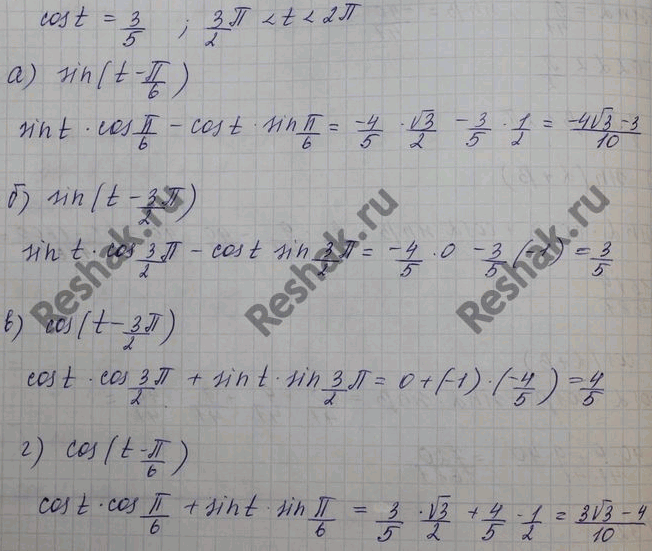 cos t = 3/5 ; 3/2 π < t < 2π
а) sin(t - π/6)
sin t · cos π/6 - cos t · sin π/6 = -4/5 · √3/2 - 3/5 · 1/2 = (-4√3 - 3)/10
б) sin(t - 3/2 π)
sin t · cos 3/2 π - cos t sin 3/2 π = -4/5 · 0 - 3/5 · (-1) = 3/5
в) cos(t - 3/2 π)
cos t · cos 3/2 π + sin t · sin 3/2 π = 0 + (-1) · (-4/5) = 4/5
г) cos(t - π/6)
cos t · cos π/6 + sin t · sin π/6 = 3/5 · √3/2 + 4/5 - 1/2 = (3√3 - 4)/10
Reshak.ru
Reshak.ru
Reshak.ru